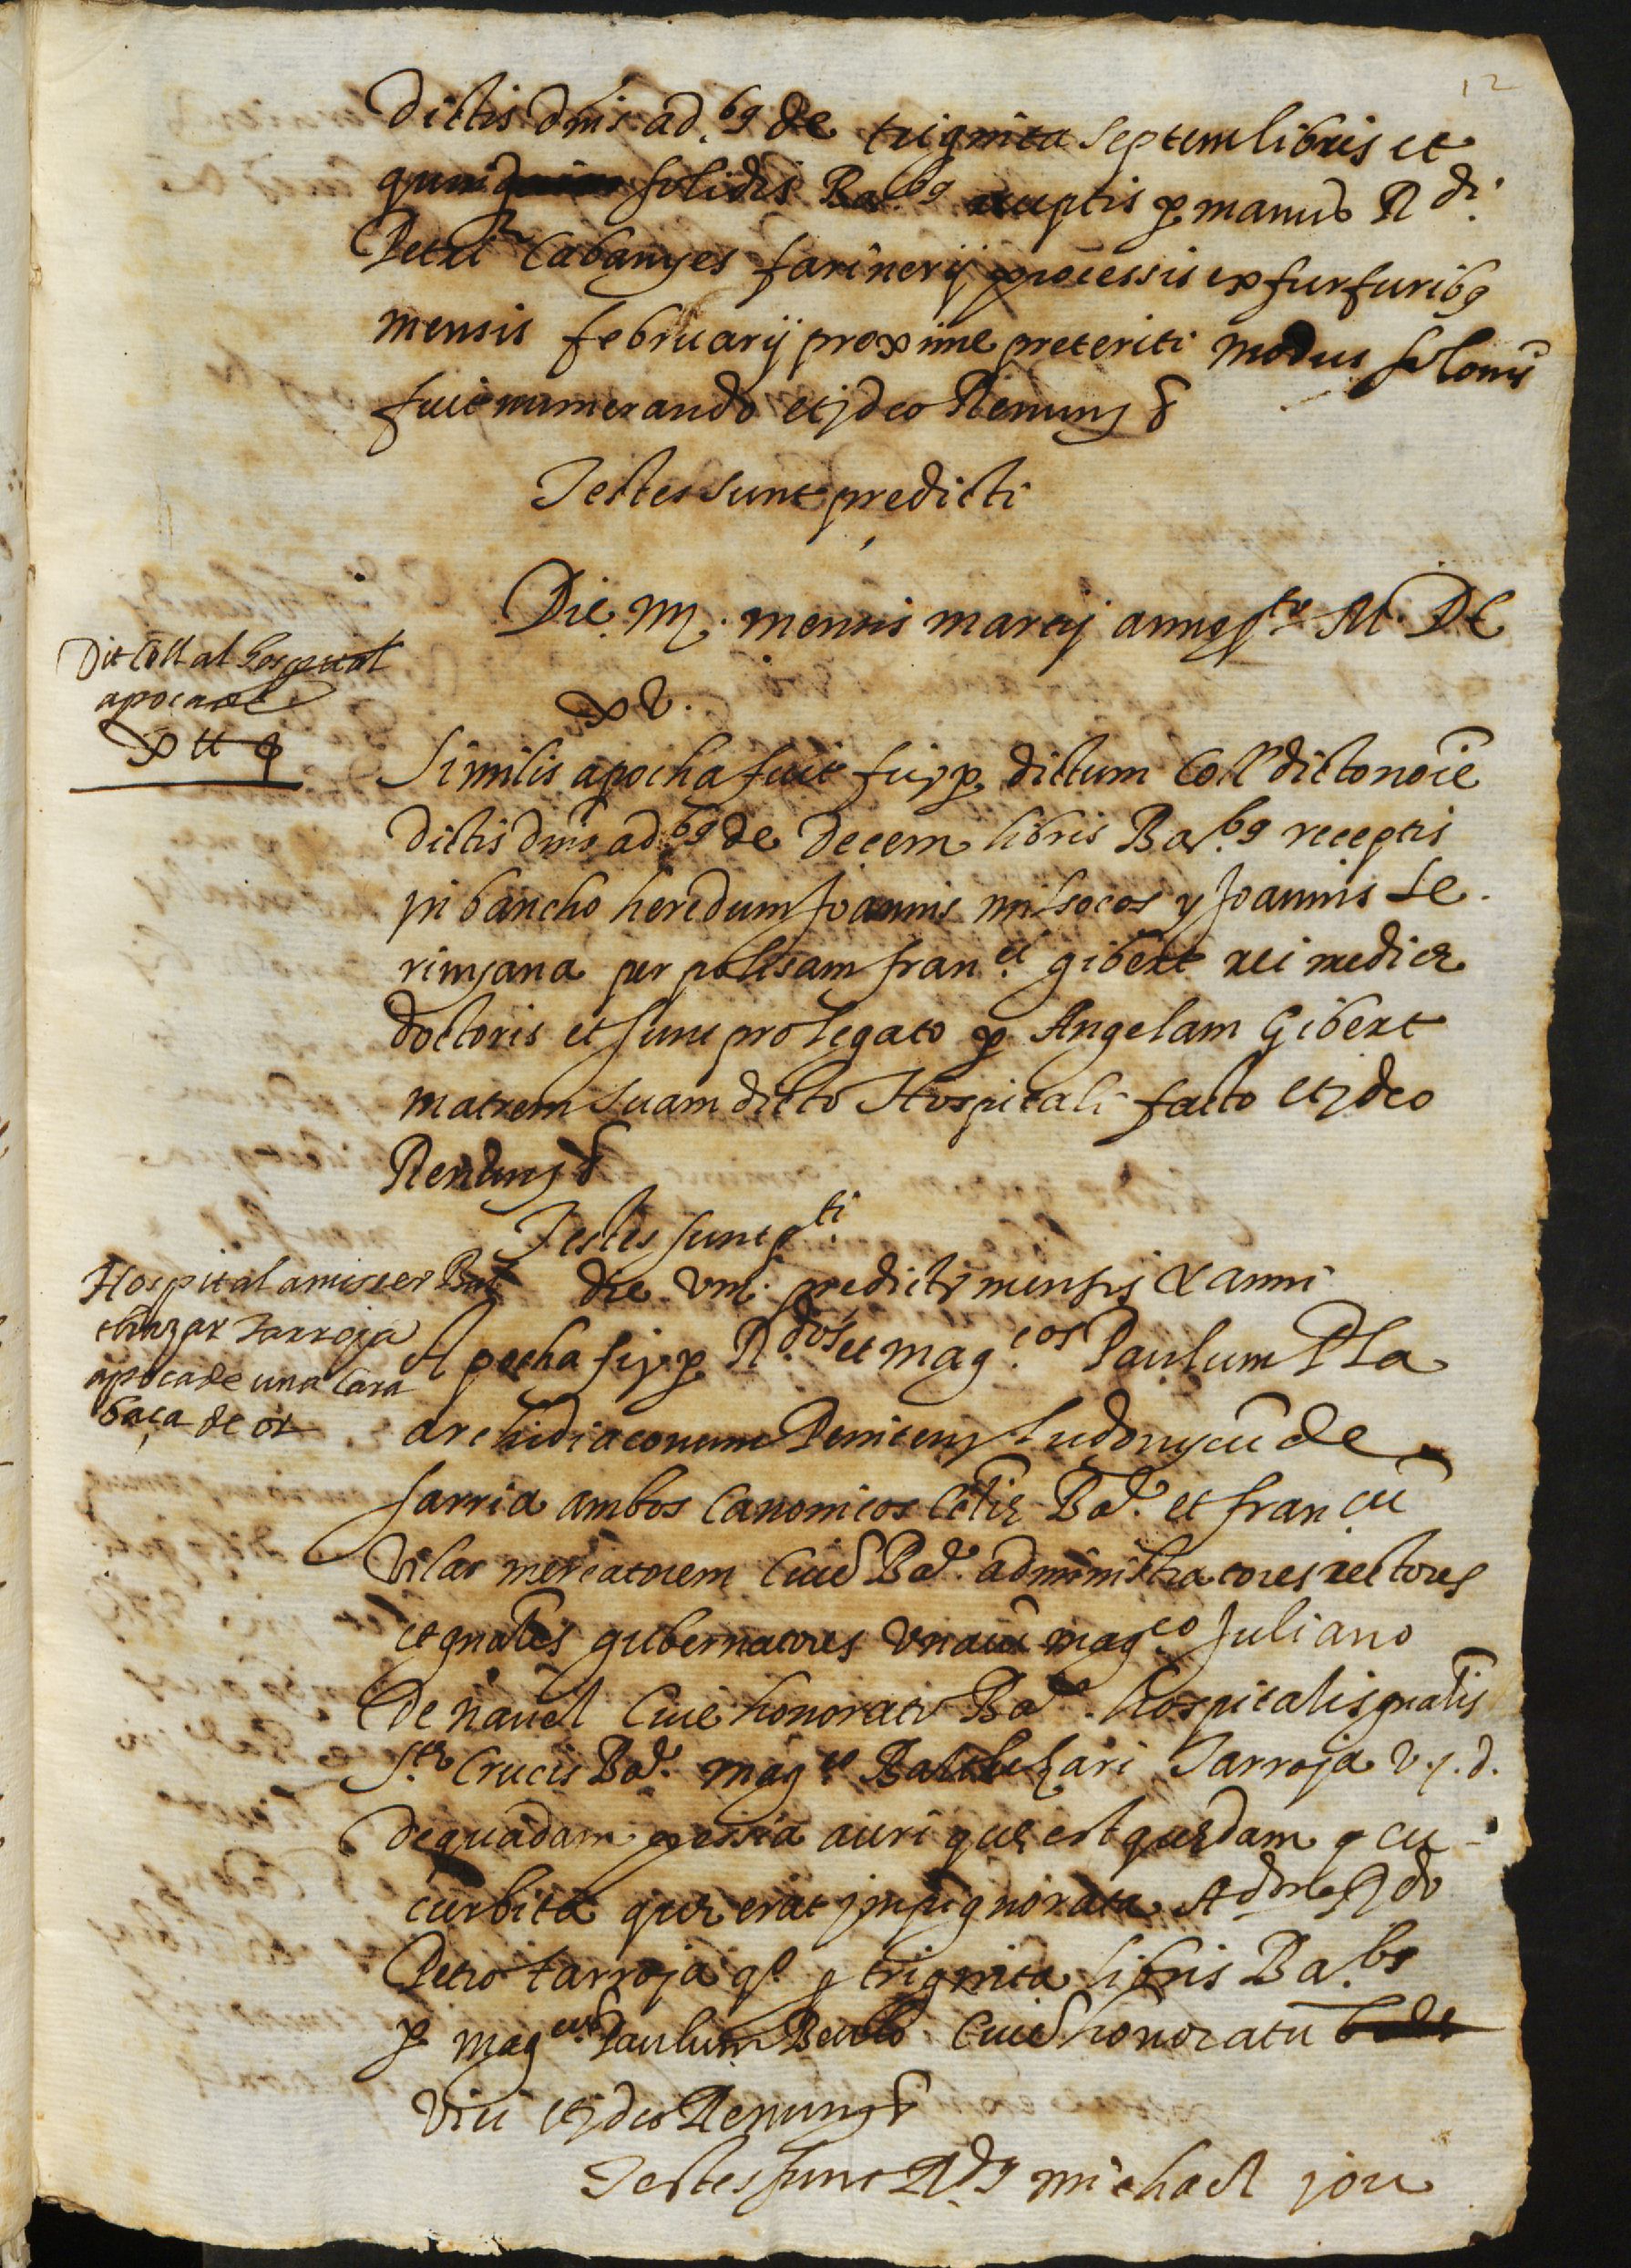 12
dictis dnis ad.bg de triginta septem libris et
solidis Ba.bg receptis p manus R di.
Petri Cabanyes farinerij processis ex furfuribg
mensis februarij proxime preteriti modus solonis
fuit numerando et jdeo Renung &
Testes sunt predicti
Die iiij. mensis martij anno M. DC
xv.
Dit Coll al hospital
apoca de
x ll
Similis apocha fuit fir p dictum Coll dicto noie
dictis dnis ad.bg de decem libris Ba.bg receptis
in bancho heredum Joannis milsocos y Joannis Se
rinyana per polisam fran ci gibert rei medice
doctoris et sunt pro legato p Angelam Gibert
matrem suam dicto Hospitali facto et jdeo
Renung &
Testes sunt p ti
Hospital a misser Bal
thazar Tarroja
apoca de una Cara
baça de or
die viij. predictis mensis & anni
Apocha fir p R.dos et mag.cos Paulum Pla
archidiaconum Penitens Ludovycu de
sarria ambos Canonicos Ba. et fran cu
Vilar mercatorem Ciue Ba. administratores rectores
et gnales gubernatores vnacu mag.co Juliano
de nauel Ciue honorato Ba. hospitalis gnalis
S.te Crucis Ba. mag.co Balthezari Tarroja v.j.d.
de quadam pessia auri que est quedam cu
curbita que erat jmpignorata
Petro tarroja q.o p triginta libris Ba.bs
p mag.cum Paulum Ciue honoratu
et jdeo Renung &
Testes sunt R.ds michael jou